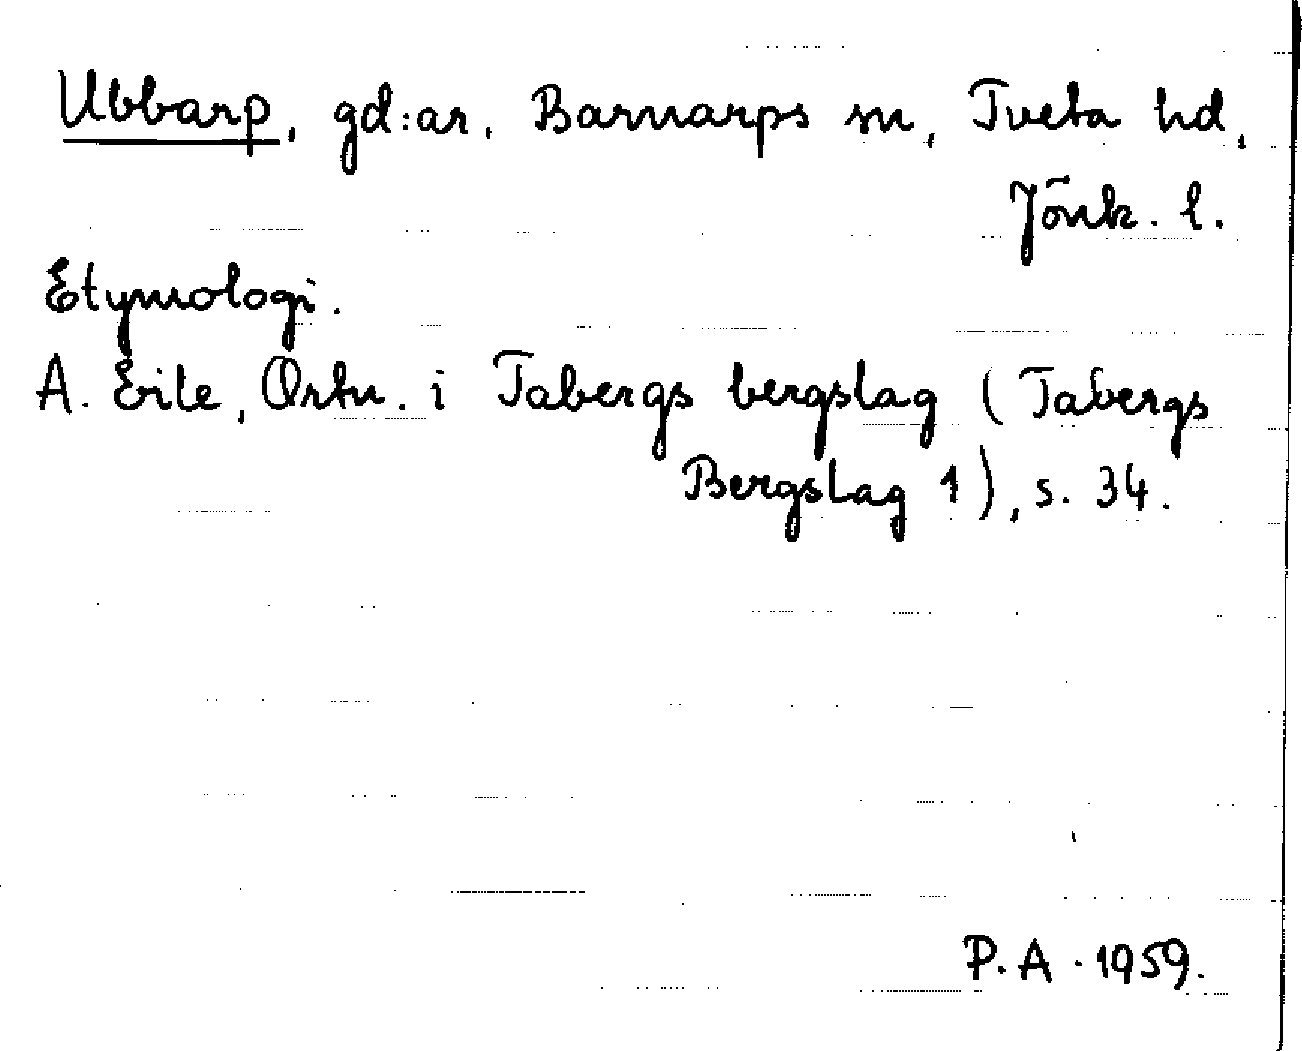 Ubbarp, gd:ar, Barnarps sn, Tveta hd,
Jönk. l.
Etymologi.
A. Ejle, Ortn. i Tabergs bergslag (Tabergs
Bergslag 1), s. 34.
P.A. 1959.